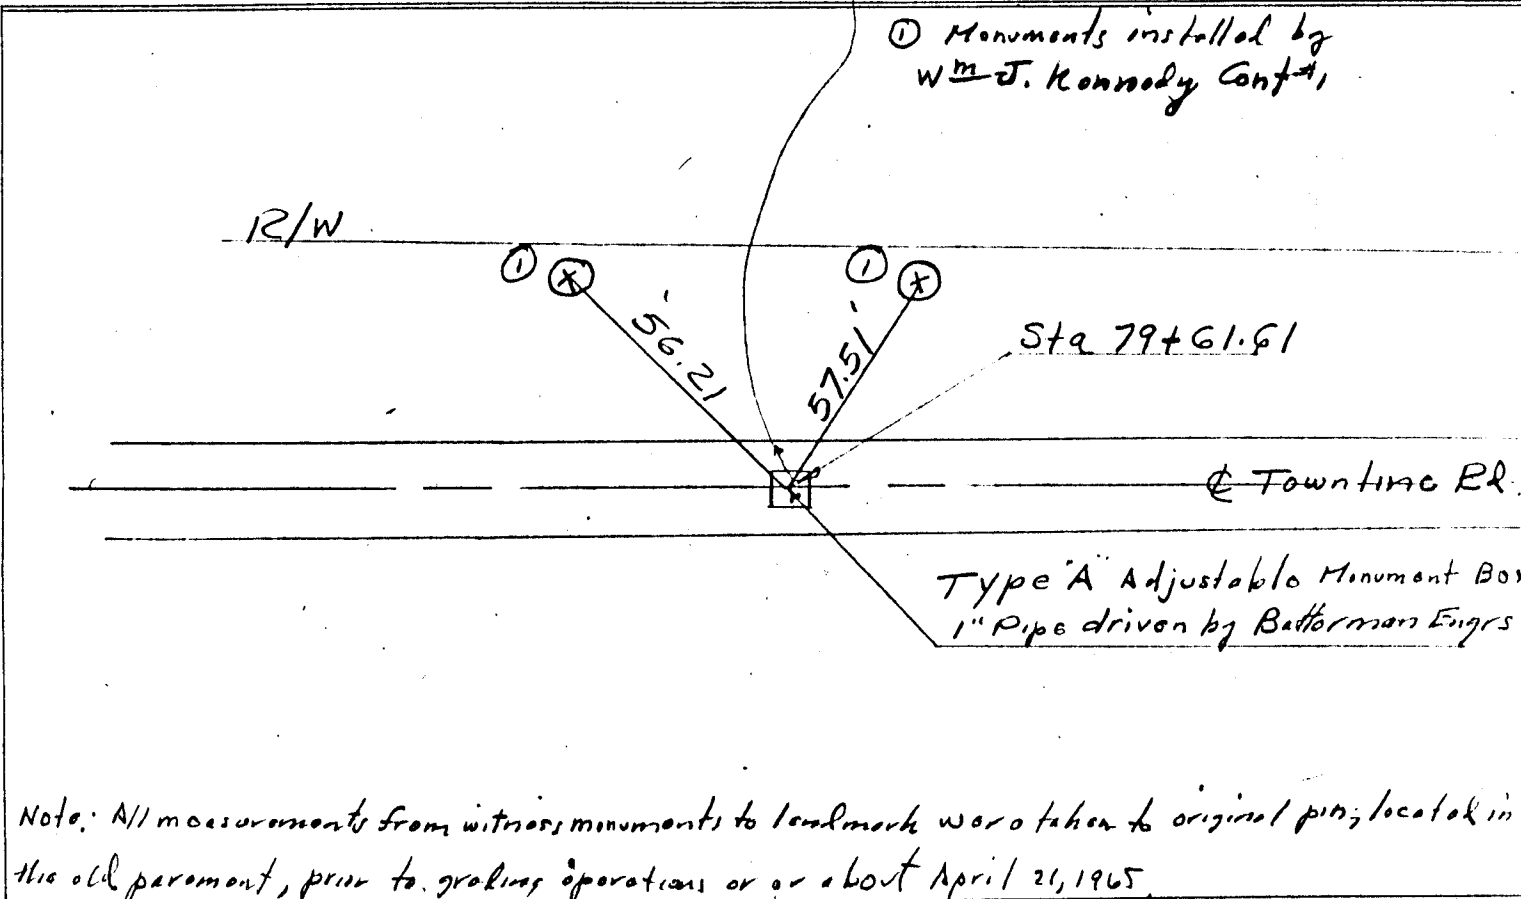 ① Monuments installed by
Wm J. Kennedy Cont #1
R/W
① ①
56.21'
57.51'
Sta 79+61.61
℄ Townline Rd.
Type "A" Adjustable Monument Box
1" Pipe driven by Batterman Engrs
Note: All measurements from witness monuments to landmark were taken to original pin; located in
the old pavement, prior to grading operations or or about April 21, 1965.